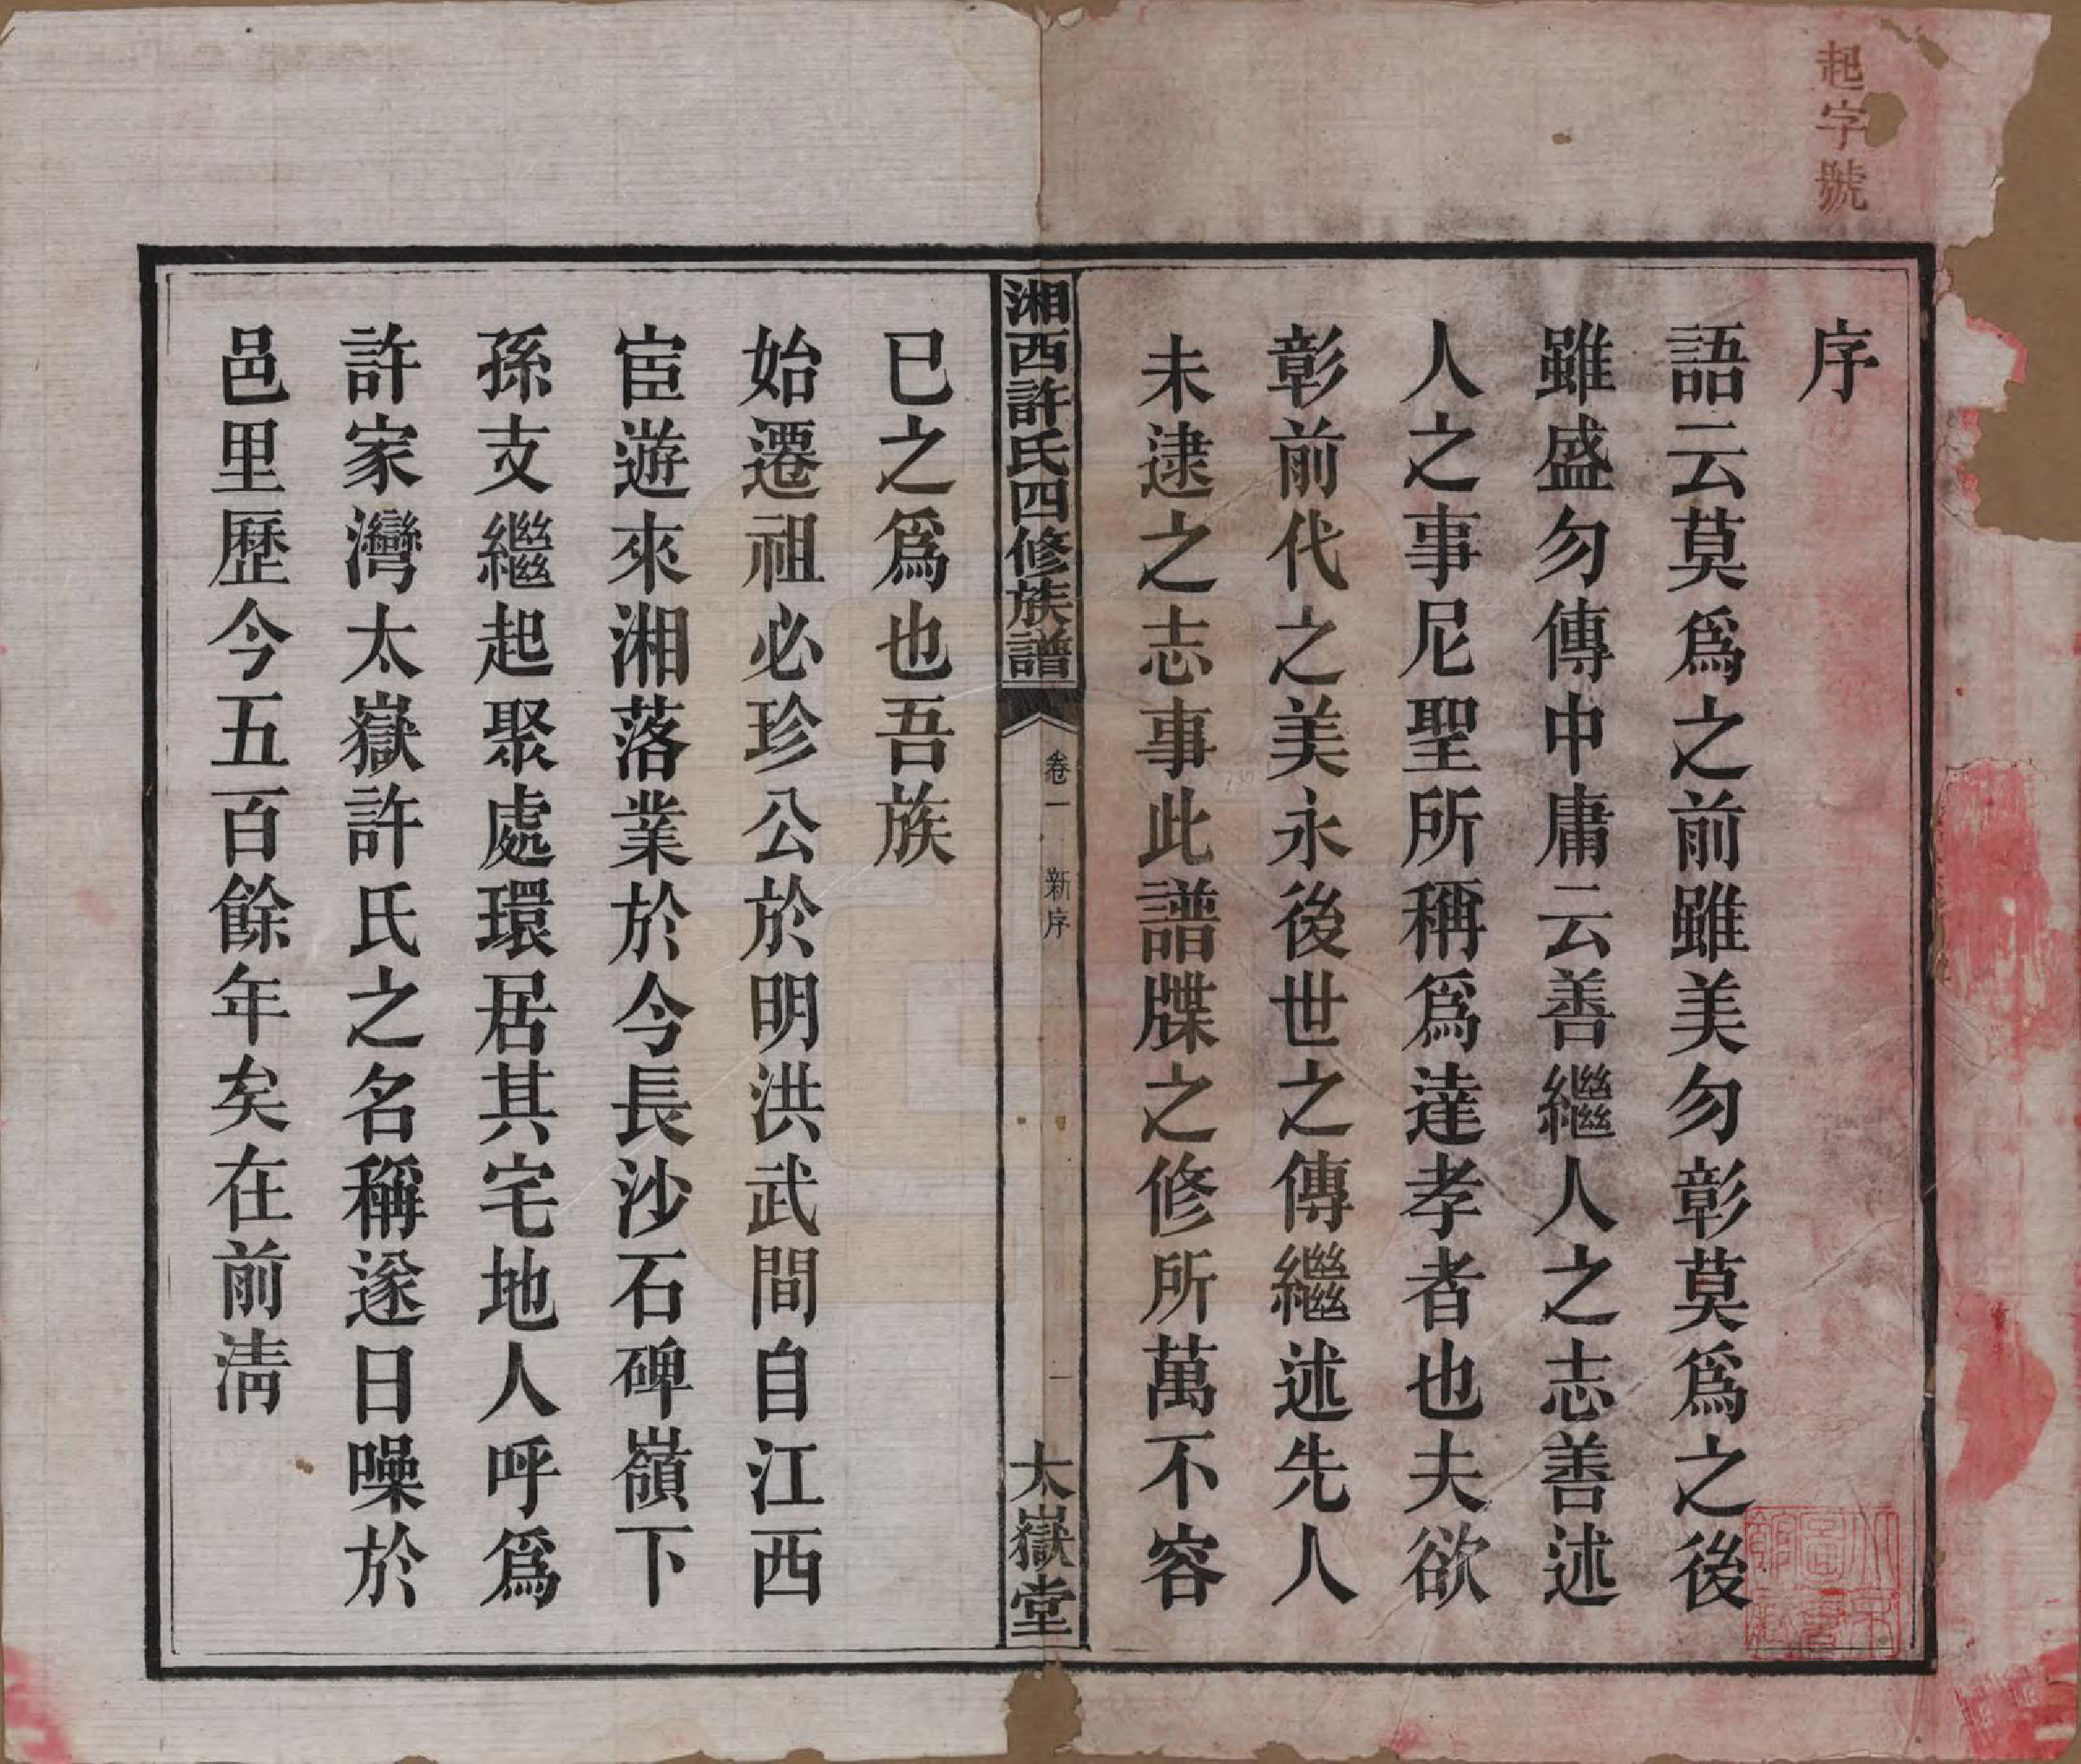 起字號
序
語云莫爲之前雖美勿彰莫爲之後
雖盛勿傳中庸云善繼人之志善述
人之事尼聖所稱爲達孝者也夫欲
彰前代之美永後世之傳繼述先人
未逮之志事此譜牒之修所萬不容
湘西許氏四修族譜
卷一 新序
一
太嶽堂
已之爲也吾族
始遷祖必珍公於明洪武間自江西
宦遊來湘落業於今長沙石碑嶺下
孫支繼起聚處環居其宅地人呼爲
許家灣太嶽許氏之名稱遂日噪於
邑里歷今五百餘年矣在前清